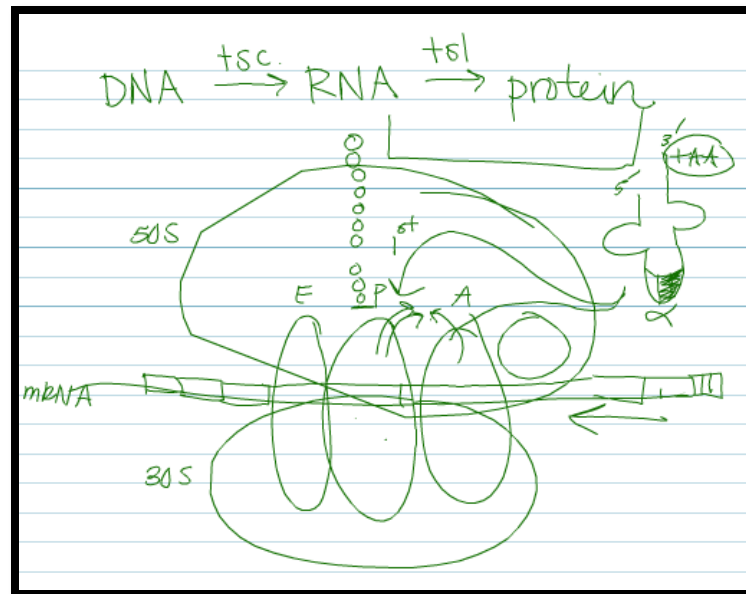 tsc. tsl
DNA → RNA → protein
3'
+AA
5'
50S
1st
E P A
α
mRNA
30S